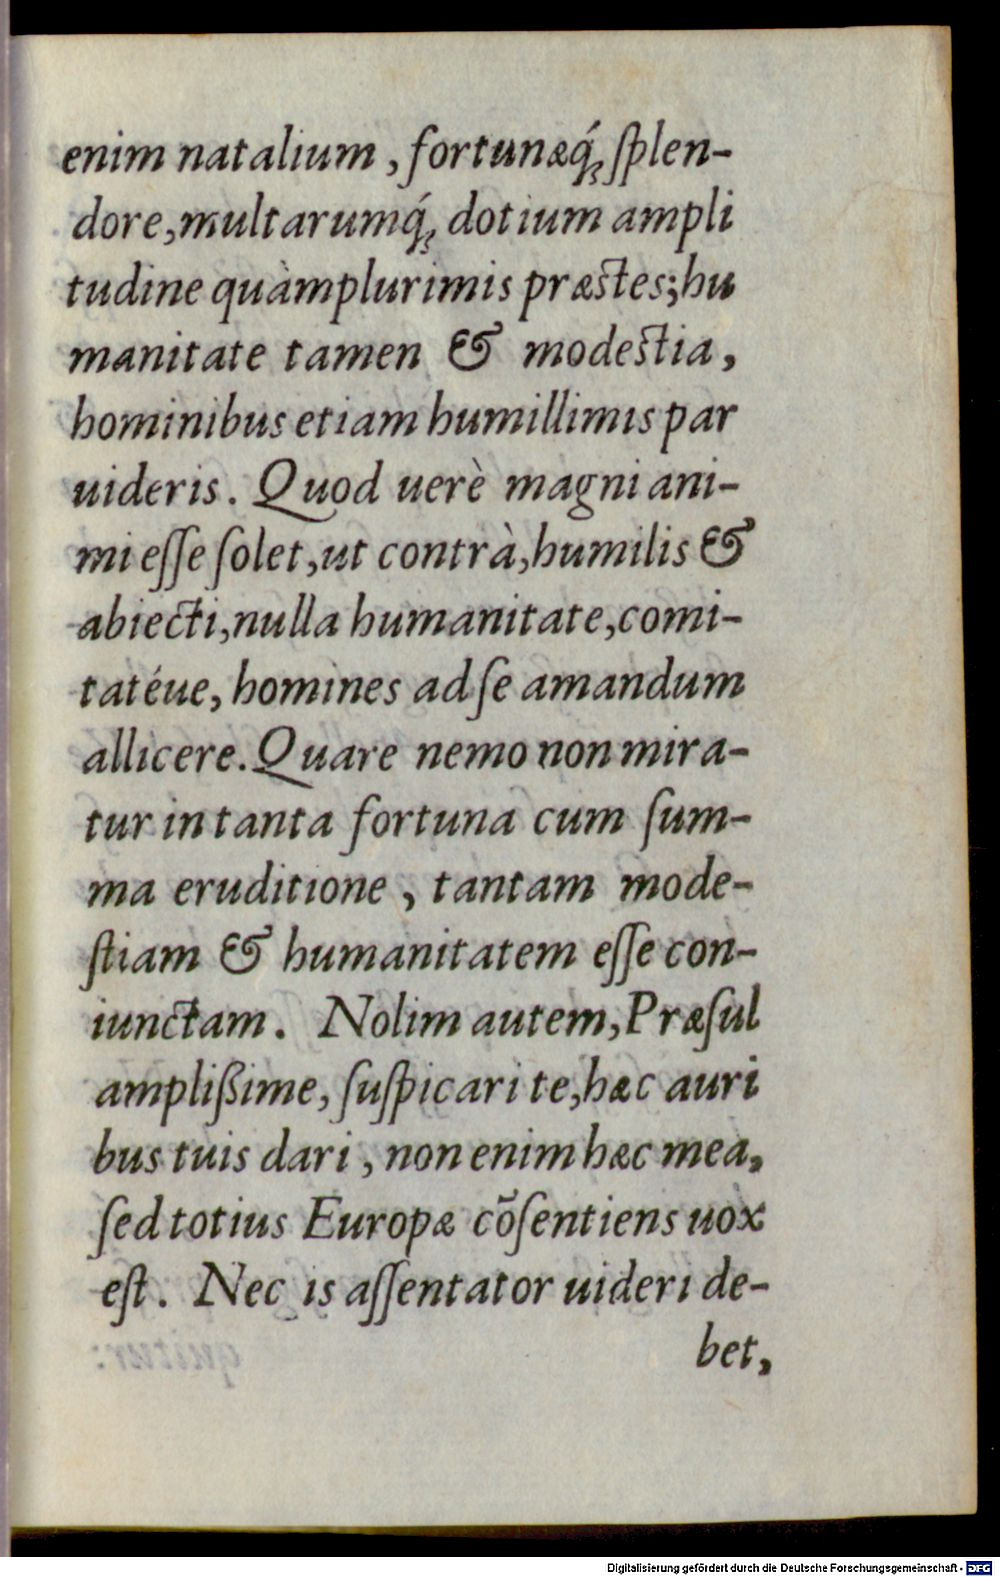 enim natalium, fortunæq́; ſplen-
dore, multarumq́; dotium ampli
tudine quàmplurimis præſtes; hu
manitate tamen & modeſtia,
hominibus etiam humillimis par
uideris. Quod uerè magni ani-
mi eſſe ſolet, ut contrà, humilis &
abiecti, nulla humanitate, comi-
tatéue, homines ad ſe amandum
allicere. Quare nemo non mira-
tur in tanta fortuna cum ſum-
ma eruditione, tantam mode-
ſtiam & humanitatem eſſe con-
iunctam. Nolim autem, Præſul
amplißime, ſuſpicari te, hæc auri
bus tuis dari, non enim hæc mea,
ſed totius Europæ cõſentiens uox
eſt. Nec is aſſentator uideri de-
bet,
Digitalisierung gefördert durch die Deutsche Forschungsgemeinschaft - DFG